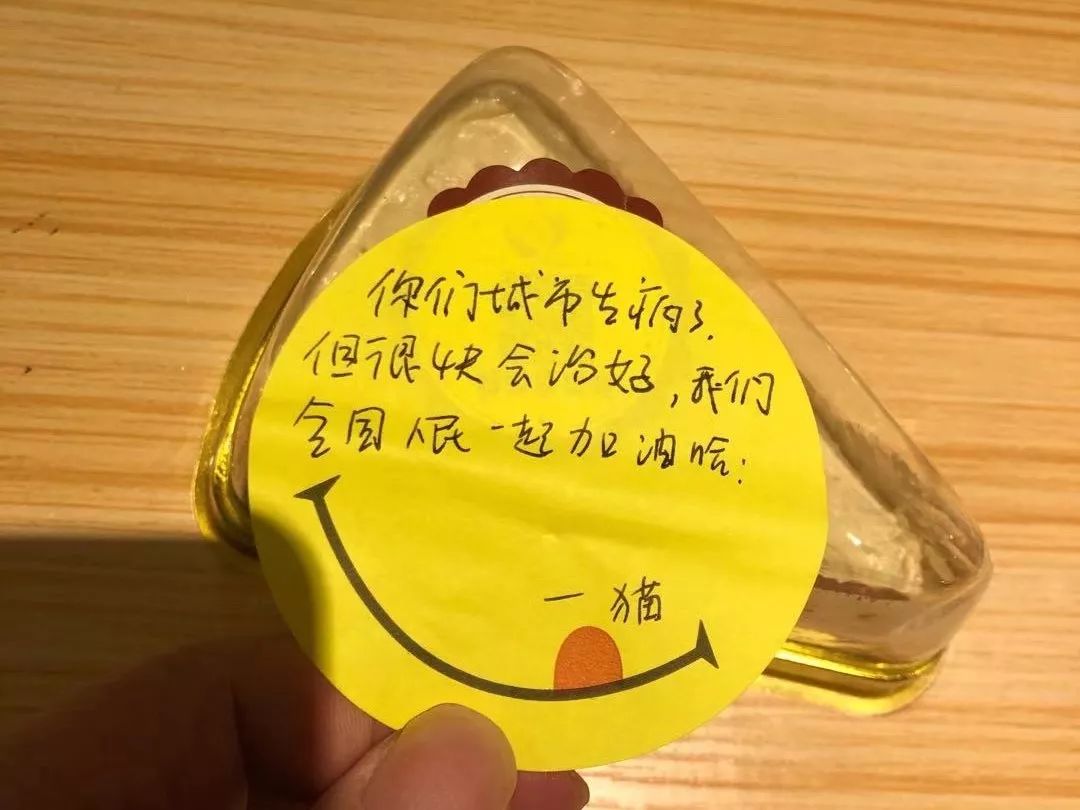 你们城市生病了,
但很快会治好,我们
全国人民一起加油哈!
一猫